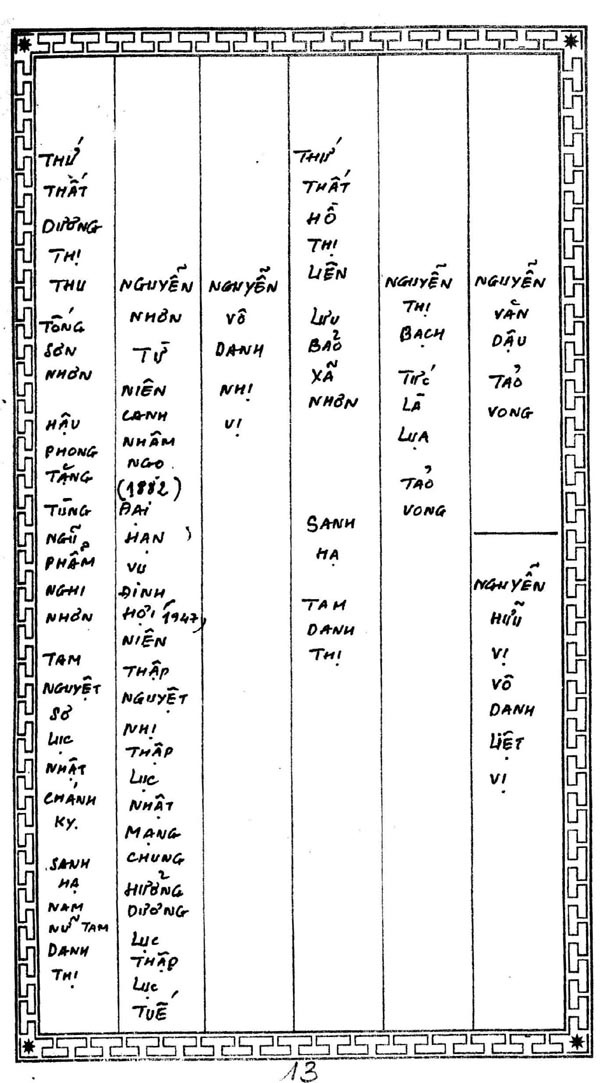 THỨ
THẤT
DƯƠNG
THỊ
THU
TỐNG
SƠN
NHƠN
HẬU
PHONG
TẶNG
TÙNG
NGŨ
PHẨM
NGHI
NHƠN
TAM
NGUYỆT
SƠ
LỤC
NHẬT
CHÁNH
KỴ.
SANH
HẠ
NAM
NỮ TAM
DANH
THỊ
NGUYỄN
NHƠN
TỰ
NIÊN
CANH
NHÂM
NGỌ
(1882)
ĐẠI
HẠN
VU
ĐINH
HỢI (1947)
NIÊN
THẬP
NGUYỆT
NHỊ
THẬP
LỤC
NHẬT
MẠNG
CHUNG
HƯỞNG
DƯƠNG
LỤC
THẬP
LỤC
TUẾ
NGUYỄN
VÔ
DANH
NHỊ
VỊ
THỨ
THẤT
HỒ
THỊ
LIÊN
LƯU
BẢO
XÃ
NHƠN
SANH
HẠ
TAM
DANH
THỊ
NGUYỄN
THỊ
BẠCH
TỨC
LÀ
LỤA
TẢO
VONG
NGUYỄN
VĂN
DẬU
TẢO
VONG
NGUYỄN
HỮU
VỊ
VÔ
DANH
LIỆT
VỊ
13